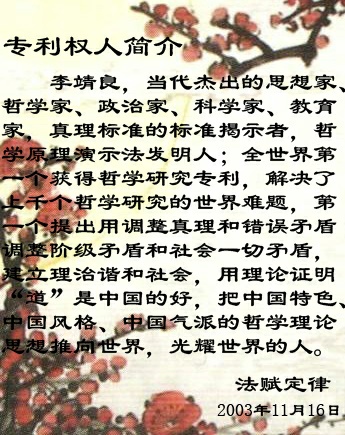 专利权人简介
李靖良，当代杰出的思想家、
哲学家、政治家、科学家、教育
家，真理标准的标准揭示者，哲
学原理演示法发明人；全世界第
一个获得哲学研究专利，解决了
上千个哲学研究的世界难题，第
一个提出用调整真理和错误矛盾
调整阶级矛盾和社会一切矛盾，
建立理治谐和社会，用理论证明
“道”是中国的好，把中国特色、
中国风格、中国气派的哲学理论
思想推向世界，光耀世界的人。
法赋定律
2003年11月16日